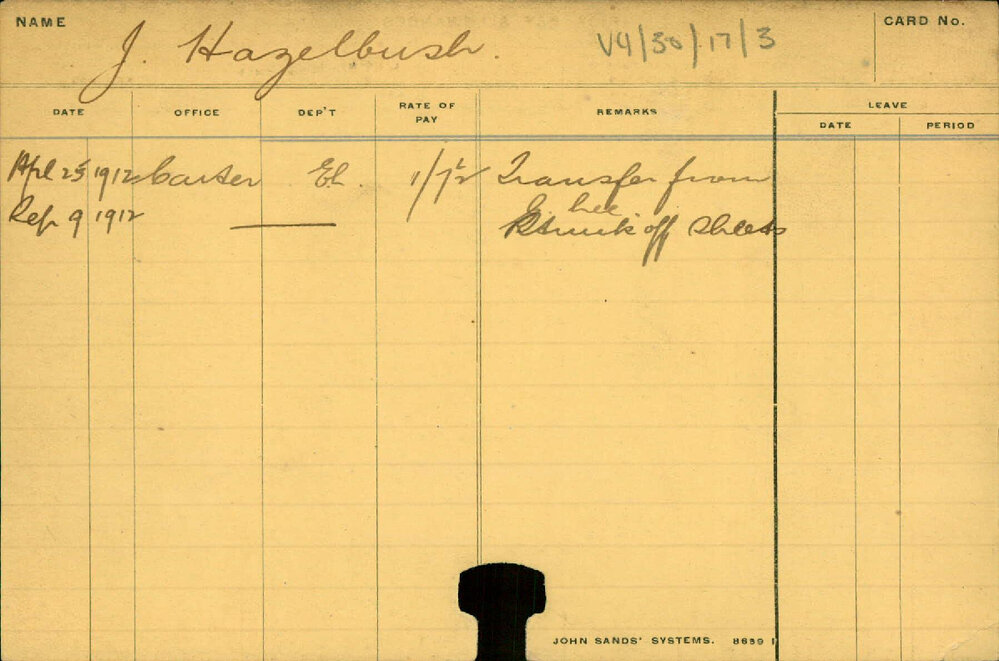 NAME J. Hazelbush. V4/30/17/3 CARD No.
DATE OFFICE DEP'T RATE OF PAY REMARKS LEAVE
DATE PERIOD
Apl 25 1912 Carter El. 1/7½ Transfer from
Sep 9 1912 —— Struck off Sheets
JOHN SANDS' SYSTEMS. 8659